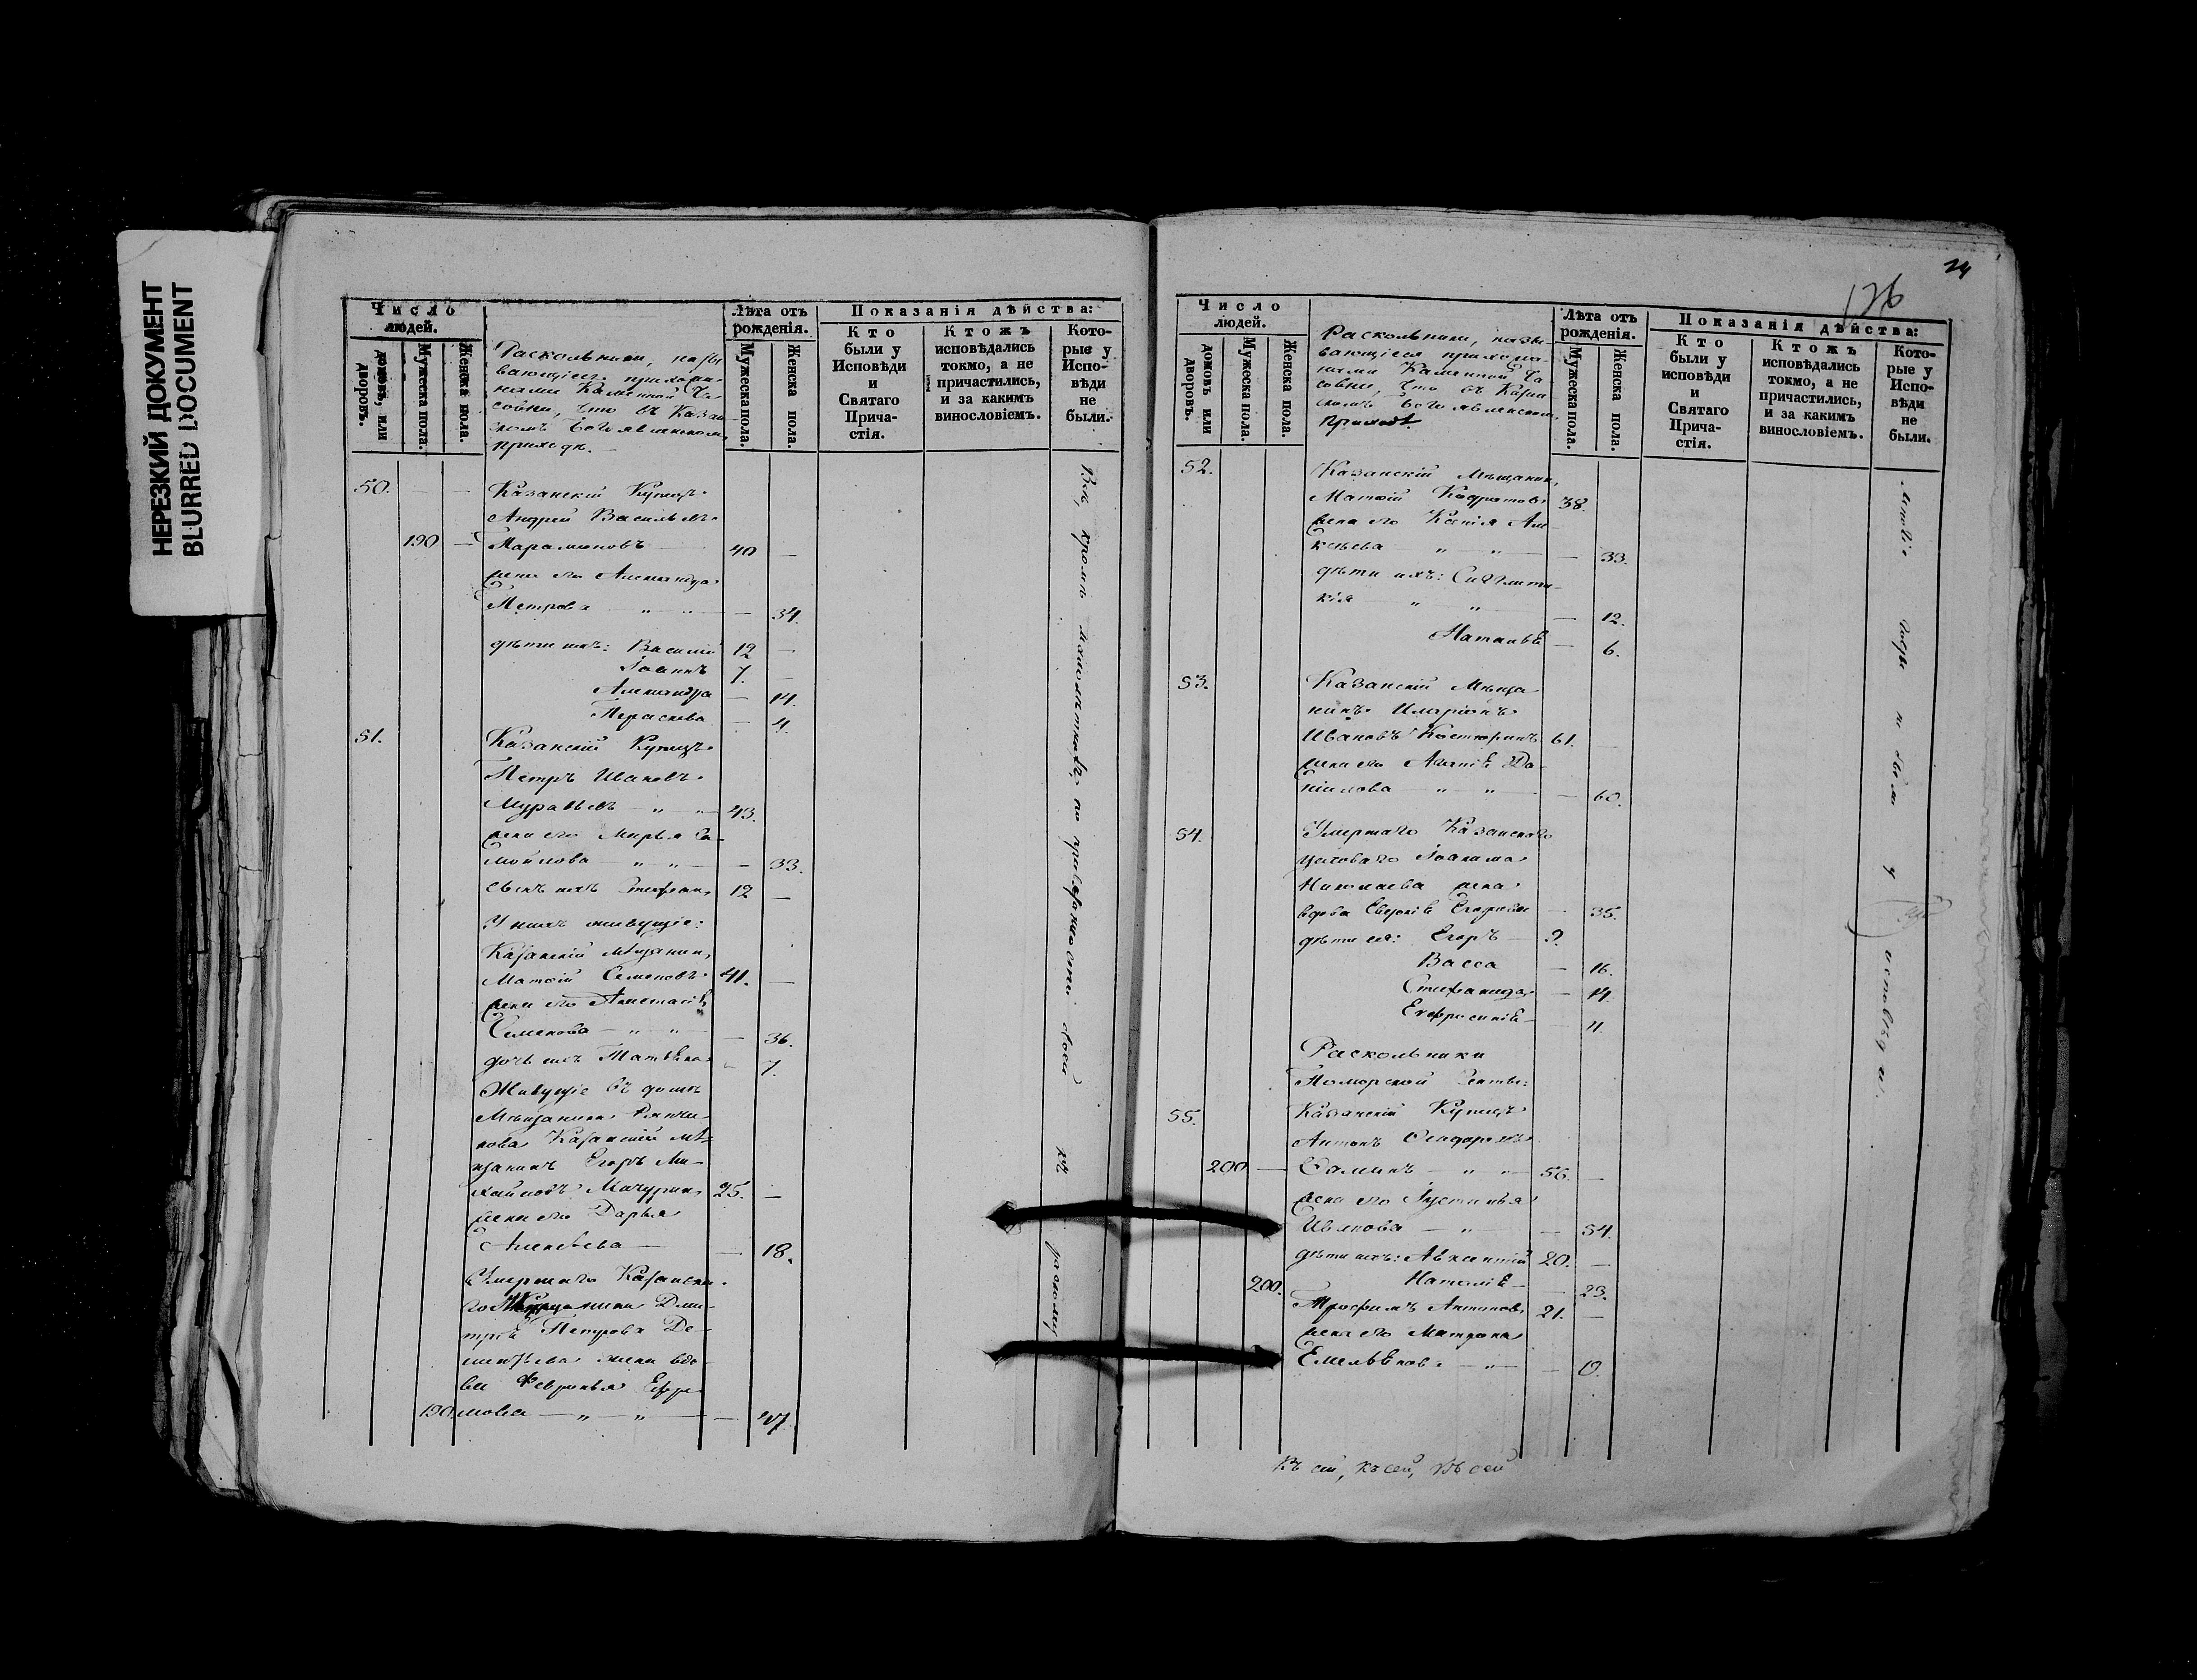 НЕРЕЗКИЙ ДОКУМЕНТ
BLURRED DOCUMENT
Число людей.
домовъ, или дворовъ.
Мужеска пола.
Женска пола.
Раскольники, назы-
вающіеся прихожа-
нами Каменной Ча-
совни, что въ Казан-
скомъ Богоявленскомъ
приходѣ.
Лѣта отъ рожденія.
Мужеска пола.
Женска пола.
Показанія дѣйства:
Кто были у Исповѣди и Святаго Прича-стія.
Ктожъ исповѣдались токмо, а не причастились, и за какимъ винословіемъ.
Кото-рые у Испо-вѣди не были.
50. — — Казанскій Купецъ
Андрей Васильевъ
190 — Парамоновъ — 40 —
жена его Александра
Петрова — „ — „ — — 34.
дѣти ихъ: Василій 12 —
Іоаннъ 7. —
Александра — 14.
Параскева — 4.
51. Казанскій Купецъ
Петръ Ивановъ
Муравьевъ — „ — „ — 43.
жена его Марья Са-
мойлова — „ — „ — — 33.
сынъ ихъ Стефанъ 12 —
У нихъ живущіе:
Казанскій Мѣщанинъ
Матѳій Семеновъ 41. —
жена его Анастасія
Семенова — „ — „ — — 36.
дочь ихъ Татьяна — 7.
Живущіе въ домѣ
Мѣщанина
нова Казанскій Мѣ-
щанинъ Егоръ Ми-
хайловъ Мачугинъ 25. —
жена его Дарья
Алексѣева — — 18.
Умершаго Казанска-
го Мѣщанина Дми-
трія Петрова Де-
ментьева жена вдо-
ва Февронья Ефре-
190. мова — „ — „ — — 47.
Всѣ, кромѣ малолѣтныхъ, по приверженности своей къ расколу
24
126
Число людей.
домовъ или дворовъ.
Мужеска пола.
Женска пола.
Раскольники, назы-
вающіеся прихожа-
нами Каменной Ча-
совни, что въ Казан-
скомъ Богоявленскомъ
приходѣ.
Лѣта отъ рожденія.
Мужеска пола.
Женска пола.
Показанія дѣйства:
Кто были у исповѣди и Святаго Прича-стія.
Ктожъ исповѣдались токмо, а не причастились, и за какимъ винословіемъ.
Кото-рые у Испо-вѣди не были.
52. Казанскій Мѣщанинъ
Матѳій Кодратовъ 38.
жена его Ксенія Али-
ксѣева — „ — „ — — 33.
дѣти ихъ: Синклити-
кія — „ — „ — — 12.
Наталья — 6.
53. Казанскій Мѣща-
нинъ Иларіонъ
Ивановъ Костюринъ 61. —
жена его Агапія Да-
ніилова — „ — „ — — 60.
54. Умершаго Казанскаго
цеховаго Іоакима
Николаева жена
вдова Евдокія Егорова — 35.
дѣти ея: Егоръ — 9.
Васса — 16.
Стефанида — 14.
Евфросинія — 11.
Раскольники
Поморской секты:
55. Казанскій Купецъ
Антонъ Ѳеодоровъ
200 — Ѳоминъ — „ — „ — 56. —
жена его Іустинья
Иванова — „ — — 54.
дѣти ихъ: Авксентій 20. —
200. Наталія — 23.
Трофимъ Антоновъ 21. —
жена его Матрона
Емельянова — „ — — 19.
исповѣди.
Къ сей, къ сей, къ сей